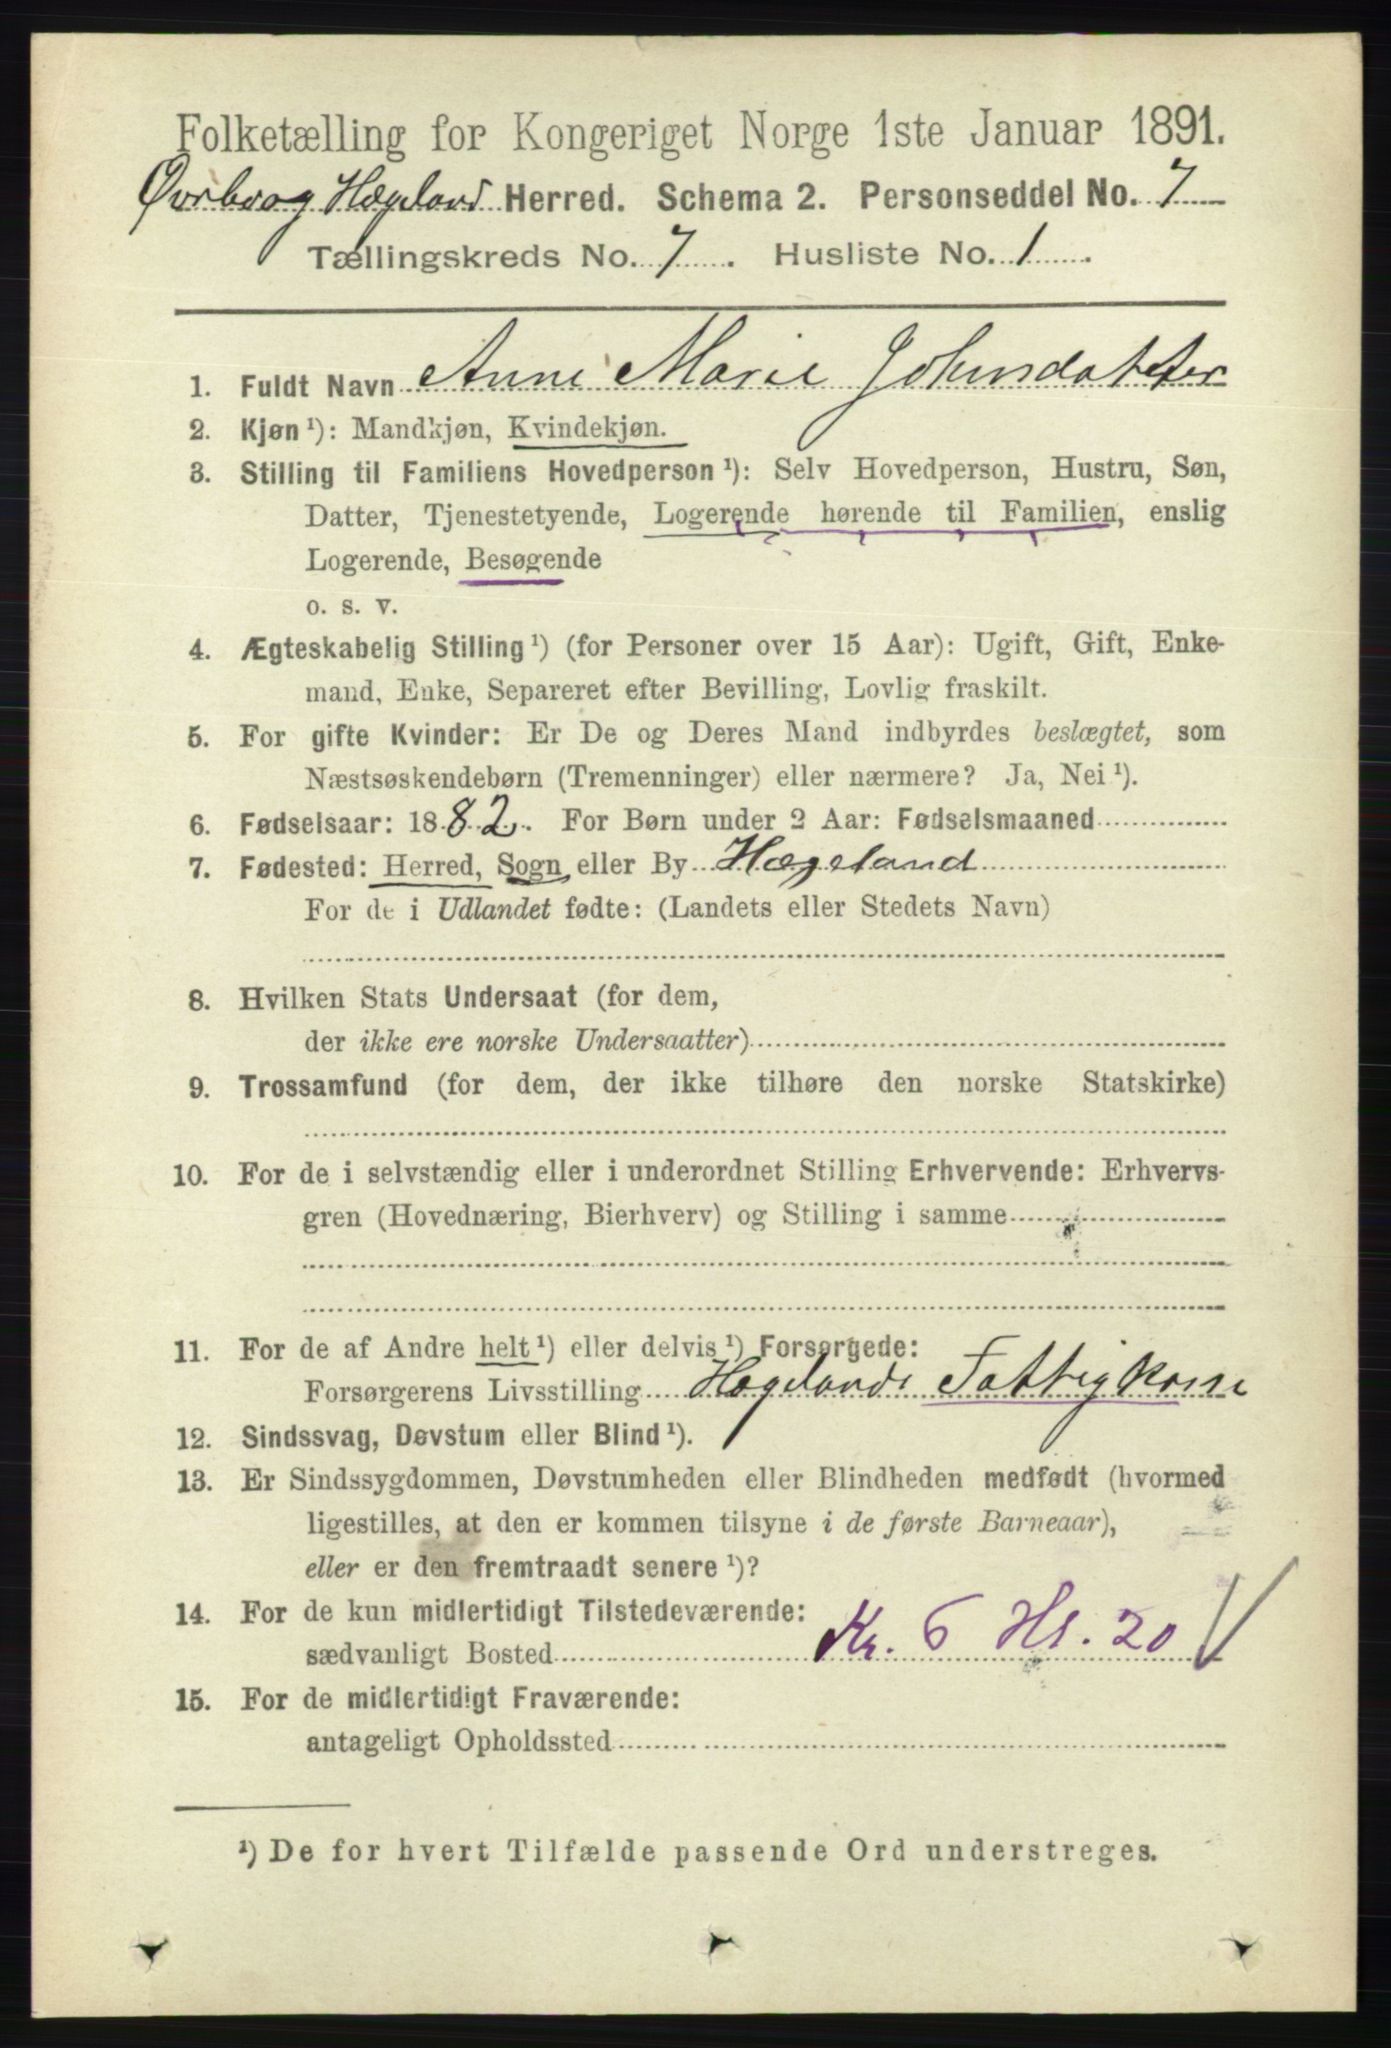 Folketælling for Kongeriget Norge 1ste Januar 1891.
Øvrebø og Hægeland Herred. Schema 2. Personseddel No. 7
Tællingskreds No. 7. Husliste No. 1.
1. Fuldt Navn Anne Marie Johnsdatter
2. Kjøn ¹): Mandkjøn, Kvindekjøn.
3. Stilling til Familiens Hovedperson ¹): Selv Hovedperson, Hustru, Søn,
Datter, Tjenestetyende, Logerende hørende til Familien, enslig
Logerende, Besøgende
o. s. v.
4. Ægteskabelig Stilling ¹) (for Personer over 15 Aar): Ugift, Gift, Enke-
mand, Enke, Separeret efter Bevilling, Lovlig fraskilt.
5. For gifte Kvinder: Er De og Deres Mand indbyrdes beslægtet, som
Næstsøskendebørn (Tremenninger) eller nærmere? Ja, Nei ¹).
6. Fødselsaar: 1882. For Børn under 2 Aar: Fødselsmaaned
7. Fødested: Herred, Sogn, eller By Hægeland
For de i Udlandet fødte: (Landets eller Stedets Navn)
8. Hvilken Stats Undersaat (for dem,
der ikke ere norske Undersaatter)
9. Trossamfund (for dem, der ikke tilhøre den norske Statskirke)
10. For de i selvstændig eller i underordnet Stilling Erhvervende: Erhvervs-
gren (Hovednæring, Bierhverv) og Stilling i samme
11. For de af Andre helt ¹) eller delvis ¹) Forsørgede:
Forsørgerens Livsstilling Hægelands Fattigkasse
12. Sindssvag, Døvstum eller Blind ¹).
13. Er Sindssygdommen, Døvstumheden eller Blindheden medfødt (hvormed
ligestilles, at den er kommen tilsyne i de første Barneaar),
eller er den fremtraadt senere ¹)?
14. For de kun midlertidigt Tilstedeværende:
sædvanligt Bosted Kr. 6 Hs. 20
15. For de midlertidigt Fraværende:
antageligt Opholdssted
¹) De for hvert Tilfælde passende Ord understreges.